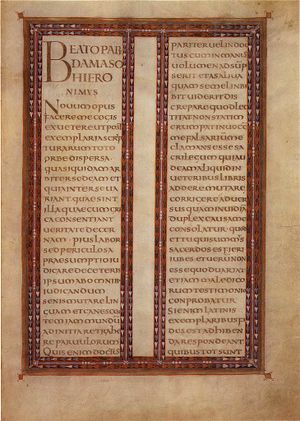 BEATO PAPAE
DAMASO
HIERO
NIMUS
NOUUM OPUS
FACERE ME COGIS
EX UETERE UT POST
EXEMPLARIA SCRIP
TURARUM TOTO
ORBE DISPERSA
QUASI QUIDAM AR
BITER SEDEAM ET
QUIA INTER SE UA
RIANT QUAE SINT
ILLA QUAE CUM GRAE
CA CONSENTIANT
UERITATE DECER
NAM PIUS LABOR
SED PERICULOSA
PRAESUMPTIO IU
DICARE DE CETERIS
IPSUM AB OMNIBUS
IUDICANDUM
SENIS MUTARE LIN
GUAM ET CANESCEN
TEM IAM MUNDUM
AD INITIA RETRAHE
RE PARUULORUM
QUIS ENIM DOCTUS
PARITER UEL INDOC
TUS CUM IN MANUS
UOLUMEN ADSUMP
SERIT ET A SALIUA
QUAM SEMEL INBI
BIT UIDERIT DIS
CREPARE QUOD LEC
TITAT NON STATIM
ERUMPAT IN UOCEM
ME FALSARIUM ME
CLAMANS ESSE SA
CRILEGUM QUI AU
DEAM ALIQUID IN
UETERIBUS LIBRIS
ADDERE MUTARE
CORRIGERE ADUER
SUS QUAM INUIDIAM
DUPLEX CAUSA ME
CONSOLATUR QUOD
ET TU QUI SUMMUS
SACERDOS ES FIERI
IUBES ET UERUM NON
ESSE QUOD UARIAT
ETIAM MALEDICO
RUM TESTIMONIO
CONPROBATUR
SI ENIM LATINIS
EXEMPLARIBUS FI
DES EST ADHIBEN
DA RESPONDEANT
QUIBUS TOT SUNT